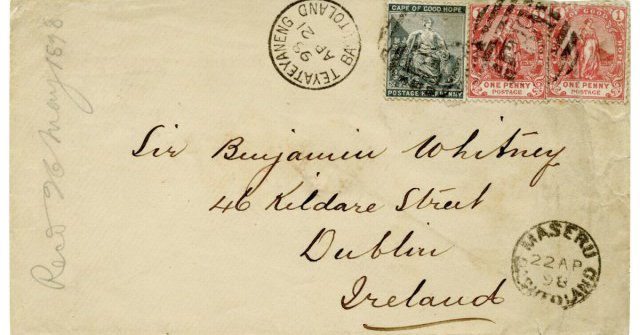 TEYATEYANENG
AP
21
98
BASUTOLAND
CAPE OF GOOD HOPE
POSTAGE HALFPENNY
ONE PENNY
POSTAGE
GOOD HOPE
1
ONE PENNY
POSTAGE
Recd 26 May 1898
Sir Benjamin Whitney
46 Kildare Street
Dublin
Ireland
MASERU
22 AP
98
BASUTOLAND